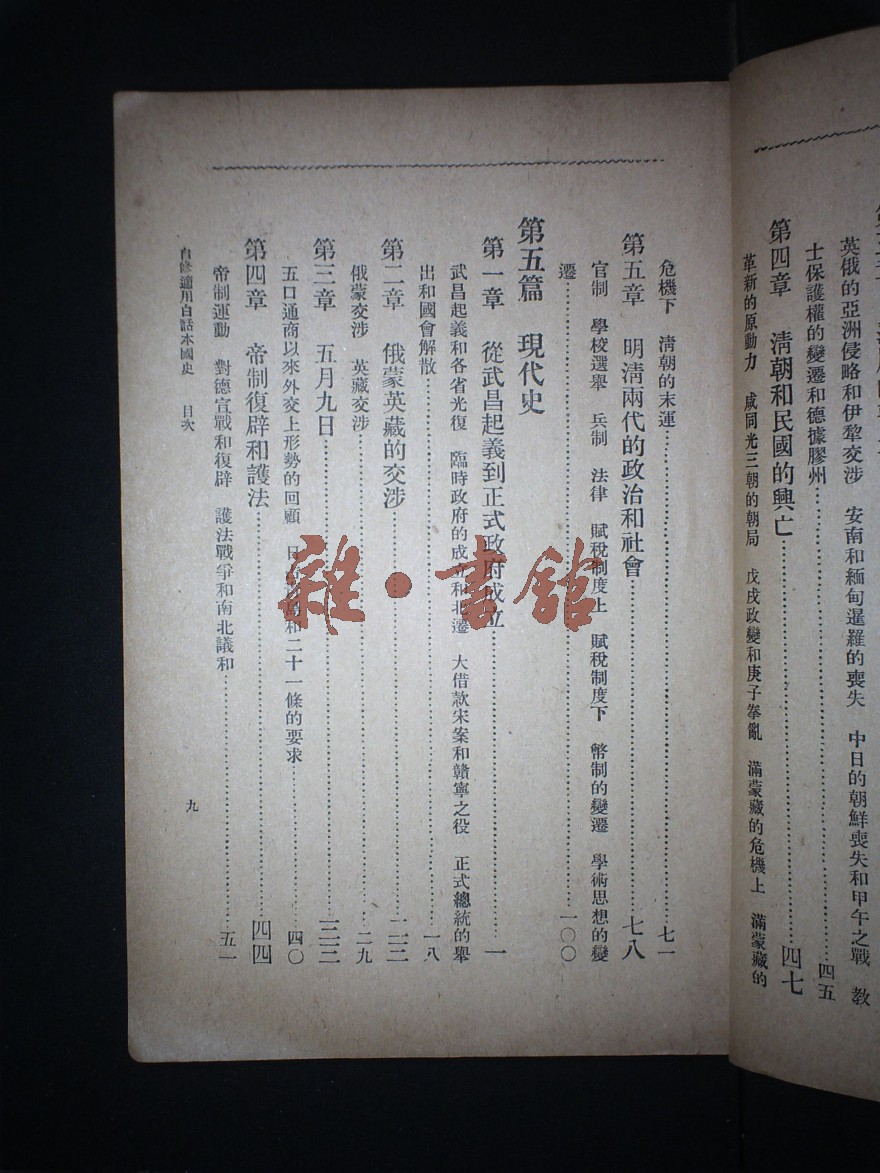 英俄的亞洲侵略和伊犂交涉　安南和緬甸暹羅的喪失　中日的朝鮮喪失和甲午之戰　教
士保護權的變遷和德據膠州……四五
第四章　清朝和民國的興亡……四七
革新的原動力　咸同光三朝的朝局　戊戌政變和庚子拳亂　滿蒙藏的危機上　滿蒙藏的
危機下　清朝的末運……七一
第五章　明清兩代的政治和社會……七八
官制　學校選舉　兵制　法律　賦稅制度上　賦稅制度下　幣制的變遷　學術思想的變
遷……一〇〇
第五篇　現代史
第一章　從武昌起義到正式政府成立……一
武昌起義和各省光復　臨時政府的成立和北遷　大借款宋案和贛寧之役　正式總統的舉
出和國會解散……一八
第二章　俄蒙英藏的交涉……二三
俄蒙交涉　英藏交涉……二九
第三章　五月九日……三三
五口通商以來外交上形勢的回顧　日和二十一條的要求……四〇
第四章　帝制復辟和護法……四四
帝制運動　對德宣戰和復辟　護法戰爭和南北議和……五一
自修適用白話本國史　目次
九
雜·書館